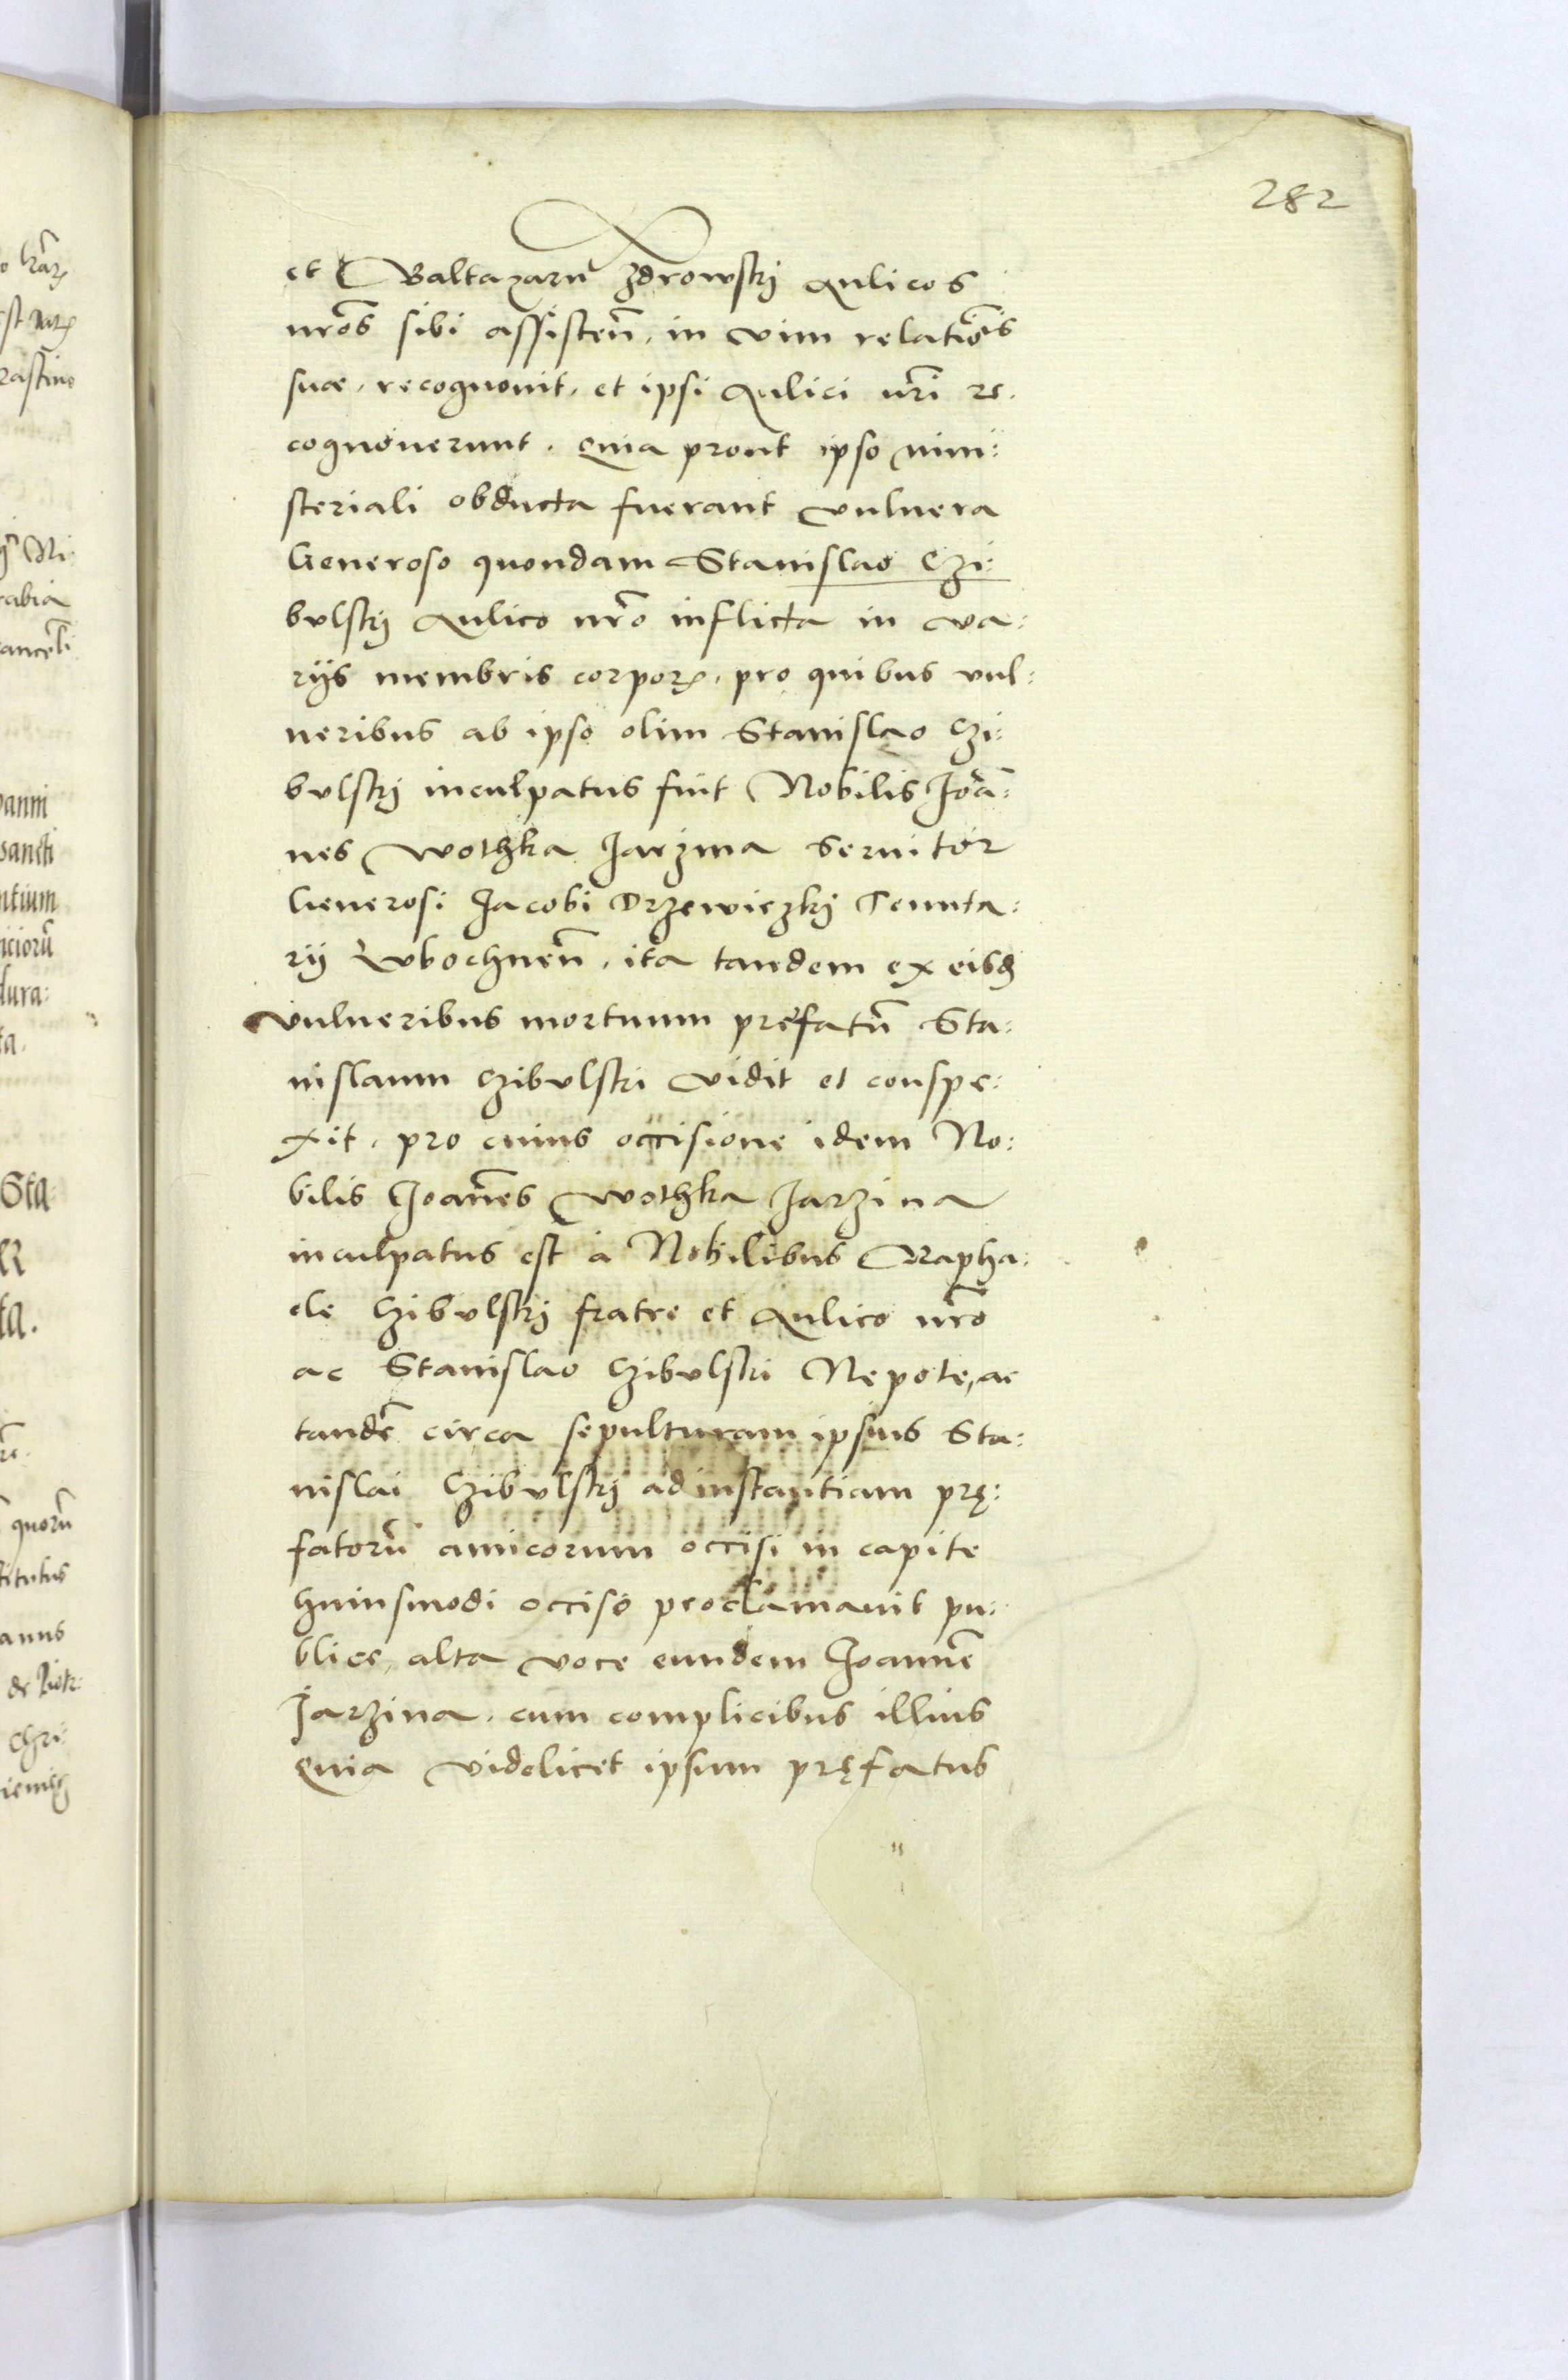 282
et Baltazarū Zdrowskj Aulicos
nr̄os sibi assisten̄. in vim relatiōis
suae. recognouit. et ipsi Aulici nr̄i re.
cognouerunt. Quia prout ipso mini:
steriali obducta fuerant vulnera
Generoso quondam Stanislao Czi:
bulskj Aulico nr̄o inflicta in va:
rijs membris corporꝭ. pro quibus vul:
neribus ab ipso olim Stanislao Czi:
bulskj inculpatus fuit Nobilis Joā:
nes Wothka Jarzina Seruitor
Generosi Jacobi Drzewiczkj Tenuta:
rij Vbochnen̄. ita tandem ex eisd
vulneribus mortuum prefatū Sta:
nislaum Czibulski vidit et conspe:
xit. pro cuius occisione idem No:
bilis Joan̄es Wothka Jarzina
inculpatus est à Nobilibus Rapha:
ele Czibulskj fratre et Aulico nr̄o
ac Stanislao Czibulski Nepote, ac
tandē circa sepulturam ipsius Sta:
nislai Czibulskj ad instantiam prę:
fatorū amicorum occisi in capite
huiusmodi occiso proclamauit pu:
blice, alta voce eundem Joannē
Jarzina. cum complicibus illius
Quia videlicet ipsum pręfatus